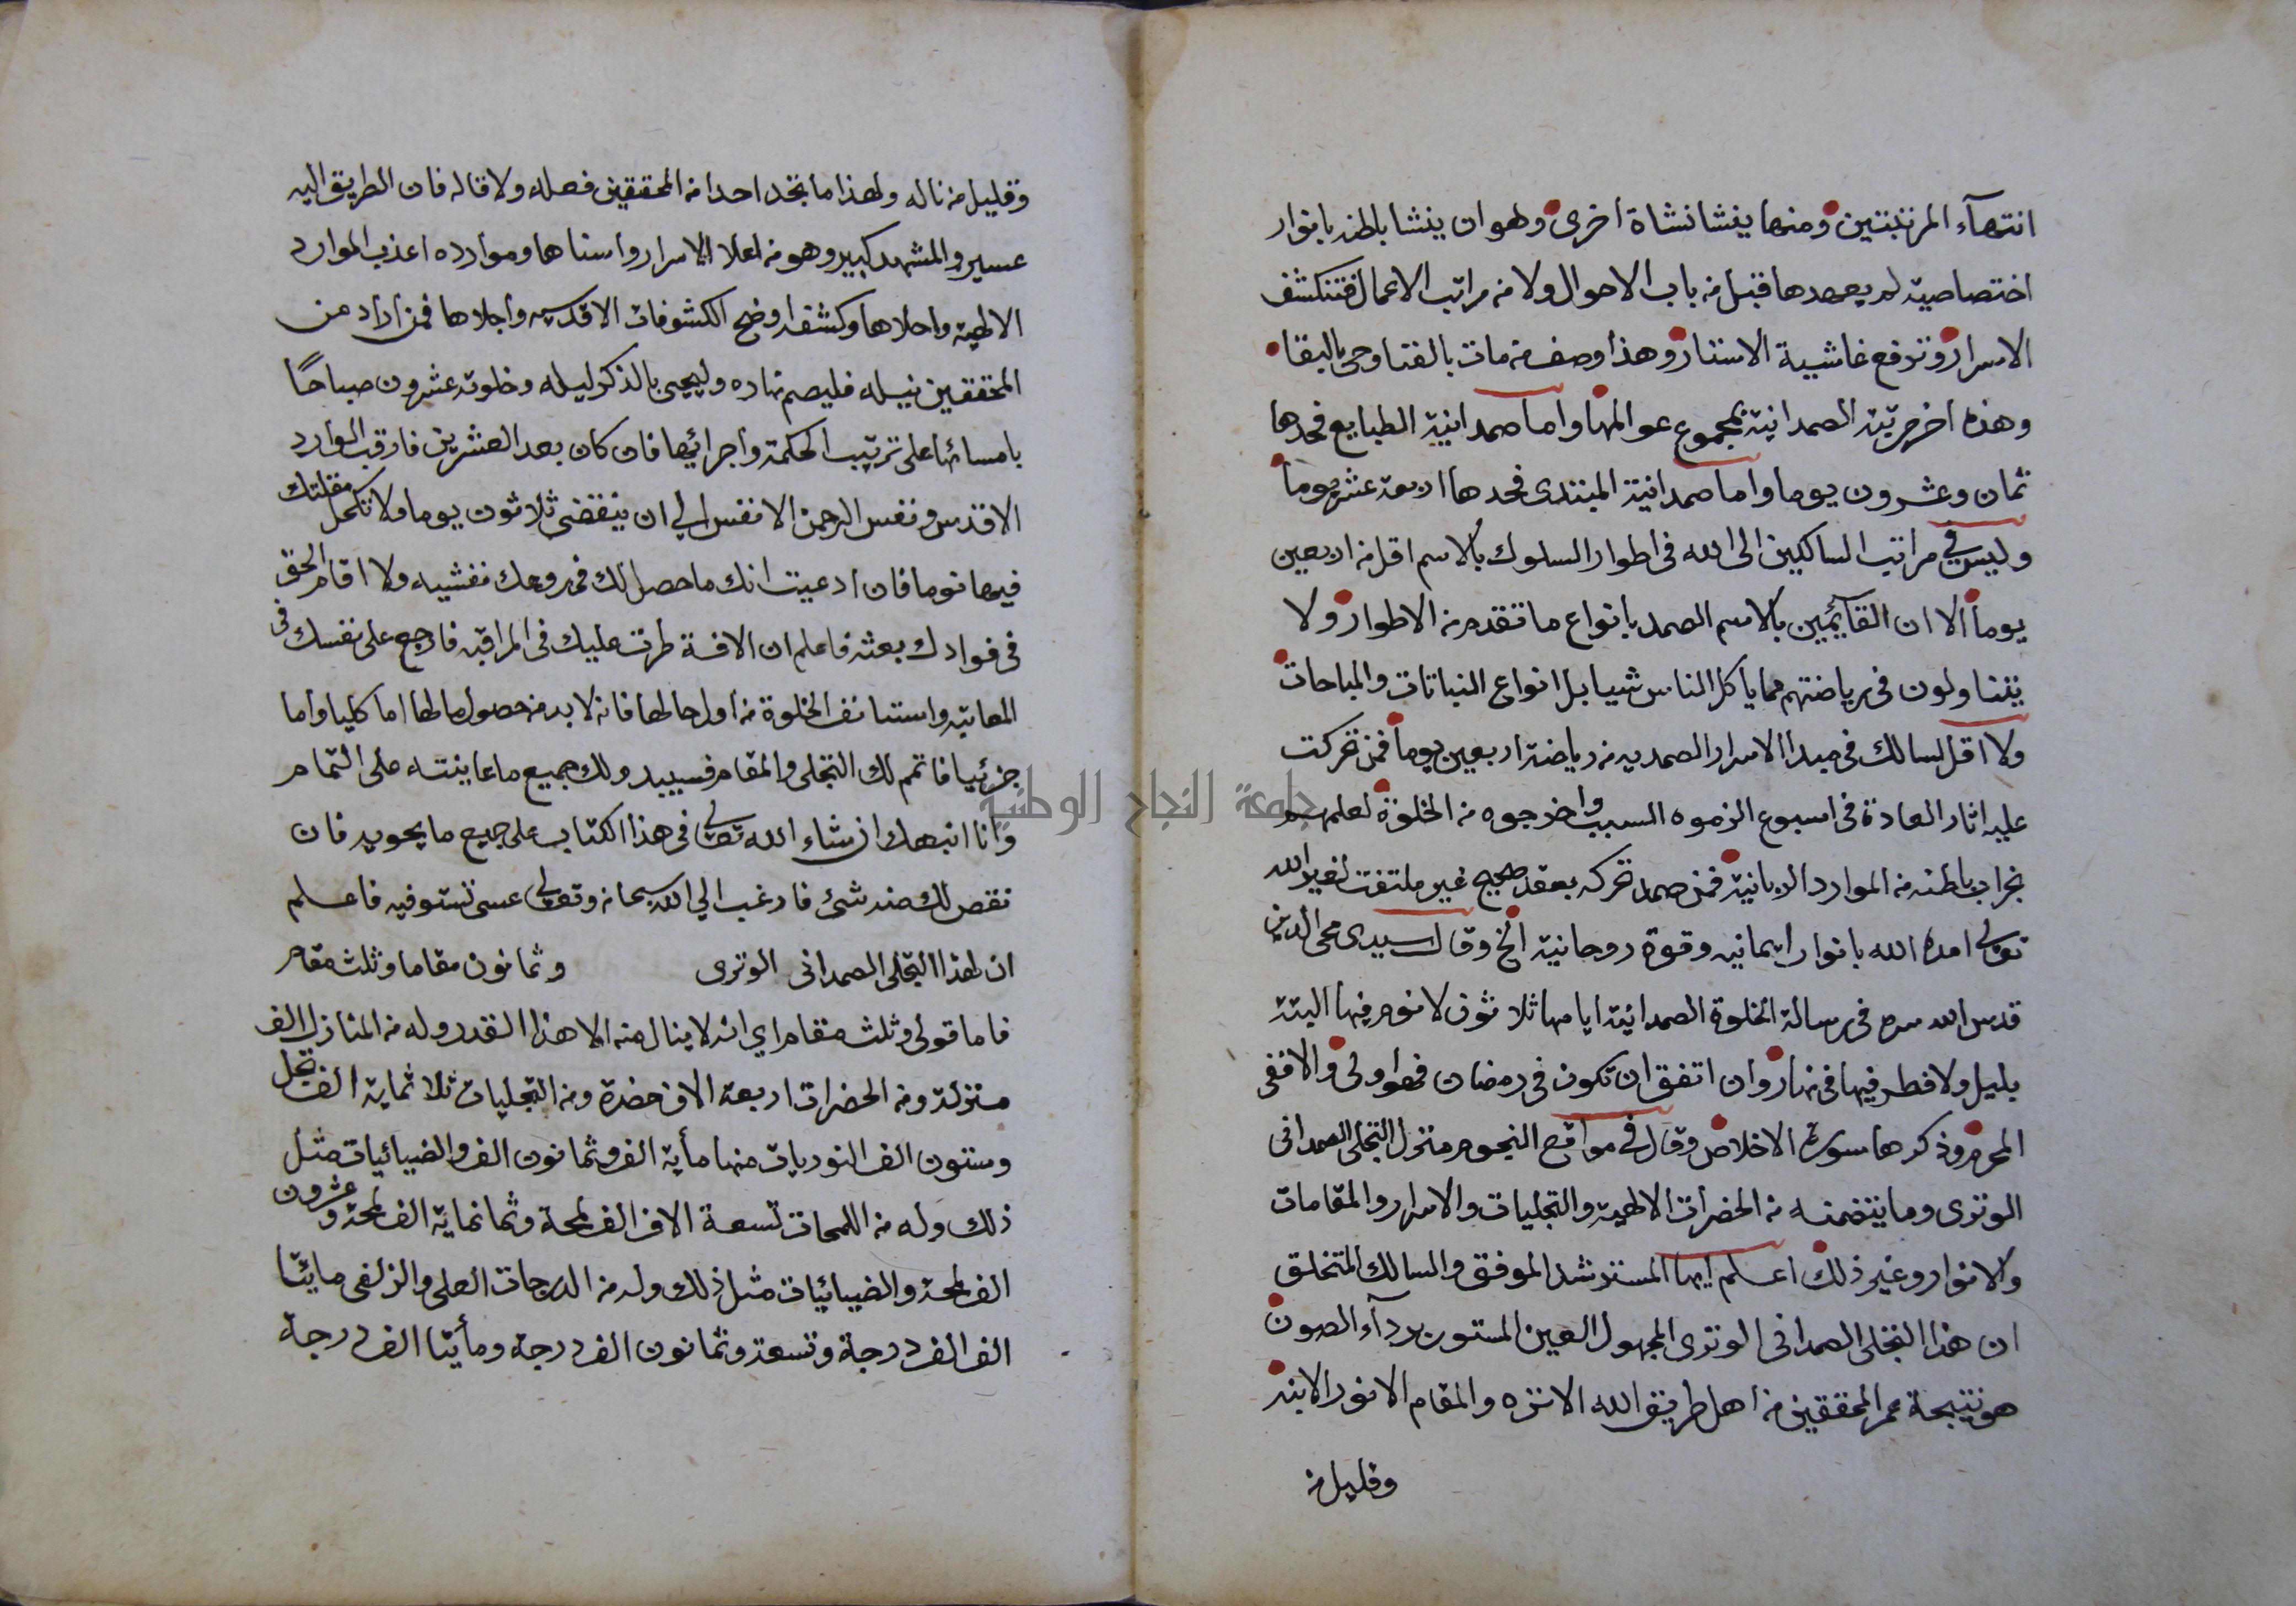 انتهآء المرتبتين ومنها ينشا نشاة اخرى وهو ان ينشا باطنه بانوار
اختصاصية لم يعهدها قبل من باب الاحوال ولا من مراتب الاعمال فتنكشف
الاسرار وترفع غاشية الاستار وهذا وصف من مات بالفنا وحي بالبقا
وهذه اخر مرتبة الصمدانية بمجموع عوالمها واما صمدانية الطبايع فحدها
ثمان وعشرون يوما واما صمدانية المبتدى فحدها اربعة عشر يوما
وليس في مراتب السالكين الى الله فى اطوار السلوك بالاسم اقل من اربعين
يوما الا ان القآيمين بالاسم الصمد بانواع ما تقدم من الاطوار ولا
يتناولون فى رياضتهم مما ياكل الناس شيا بل انواع النباتات والمباحات
ولا اقل لسالك فى مبدا الاسرار الصمديه من رياضة اربعين يوما فمن تحركت
عليه اثار العادة فى اسبوع الزموه السبب واخرجوه من الخلوة لعلمهم
بخراب باطنه من الموارد الربانية فمن صمد تحركه بعقد صحيح غير ملتفت لغير الله
تعالى امده الله بانوار ايمانيه وقوة روحانية الخ وقال سيدى محى الدين
قدس الله سره فى رسالة الخلوة الصمدانية ايامها ثلاثون لا نوم فيها البتة
بليل ولا فطر فيها فى نهار وان اتفق ان تكون فى رمضان فهو اولى والا ففى
المحرم وذكرها سورة الاخلاص وقال في مواقع النجوم منزل التجلى الصمدانى
الوترى وما يتضمنه من الحضرات الالهية والتجليات والاسرار والمقامات
والانوار وغير ذلك اعلم ايها المسترشد الموفق والسالك المتخلق
ان هذا التجلى الصمدانى الوترى المجهول العين المستور بردآء الصون
هو نتيجة عمر المحققين من اهل طريق الله الانزه والمقام الانور الابند
وقليل من
وقليل من ناله ولهذا ما تجد احدا من المحققين فصله ولا قاله فان الطريق اليه
عسير والمشهد كبير وهو من اعلا الاسرار واسناها وموارده اعذب الموارد
الالهية واحلاها وكشفه اوضح الكشوفات الاقدسيه واجلاها فمن اراد من
المحققين نيله فليصم نهاره وليحيى بالذكر ليله وخلوته عشرون صباحًا
بامسائها على ترتيب الحكمة واجرائها فان كان بعد العشرين فارقب الوارد
الاقدس ونفس الرحمن الانفس الي ان ينقضى ثلاثون يوما ولا تكحل مقلتك
فيها نوما فان ادعيت انك ما حصل لك فى روعك نفثيه ولا اقام الحق
فى فوادك بعثه فاعلم ان الافة طرت عليك فى المراقبه فارجع على نفسك فى
المعاتبه واستانف الخلوة من اول حالها فانه لا بد من حصول مالها اما كليا واما
جزئيا فاتمم لك التجلى والمقام فسيبدو لك جميع ما عاينته على التمام
وانا انبهك ان شاء الله تعالى فى هذا الكتاب على جميع ما يحويه فان
نقص لك منه شئ فارغب الي الله سبحانه وتعالى عسى تستوفيه فاعلم
ان لهذا التجلى الصمدانى الوترى وثمانون مقاما وثلث مقام
فاما قولى وثلث مقام اي انه لا ينال منه الا هذا القدر وله من المنازل الف
منزلة ومن الحضرات اربعة الاف حضرة ومن التجليات ثلاثماية الف تجل
وستون الف النوريات منها مأية الف وثمانون الف والضيائيات مثل
ذلك وله من اللمحات تسعة الاف الف لمحة وثمانماية الف لمحة وعشرون
الف لمحة والضيائيات مثل ذلك وله من الدرجات العلى والزلفى مايتا
الف الف درجة وتسعة وثمانون الف درجة ومأيتا الف درجة
جامعة النجاح الوطنية